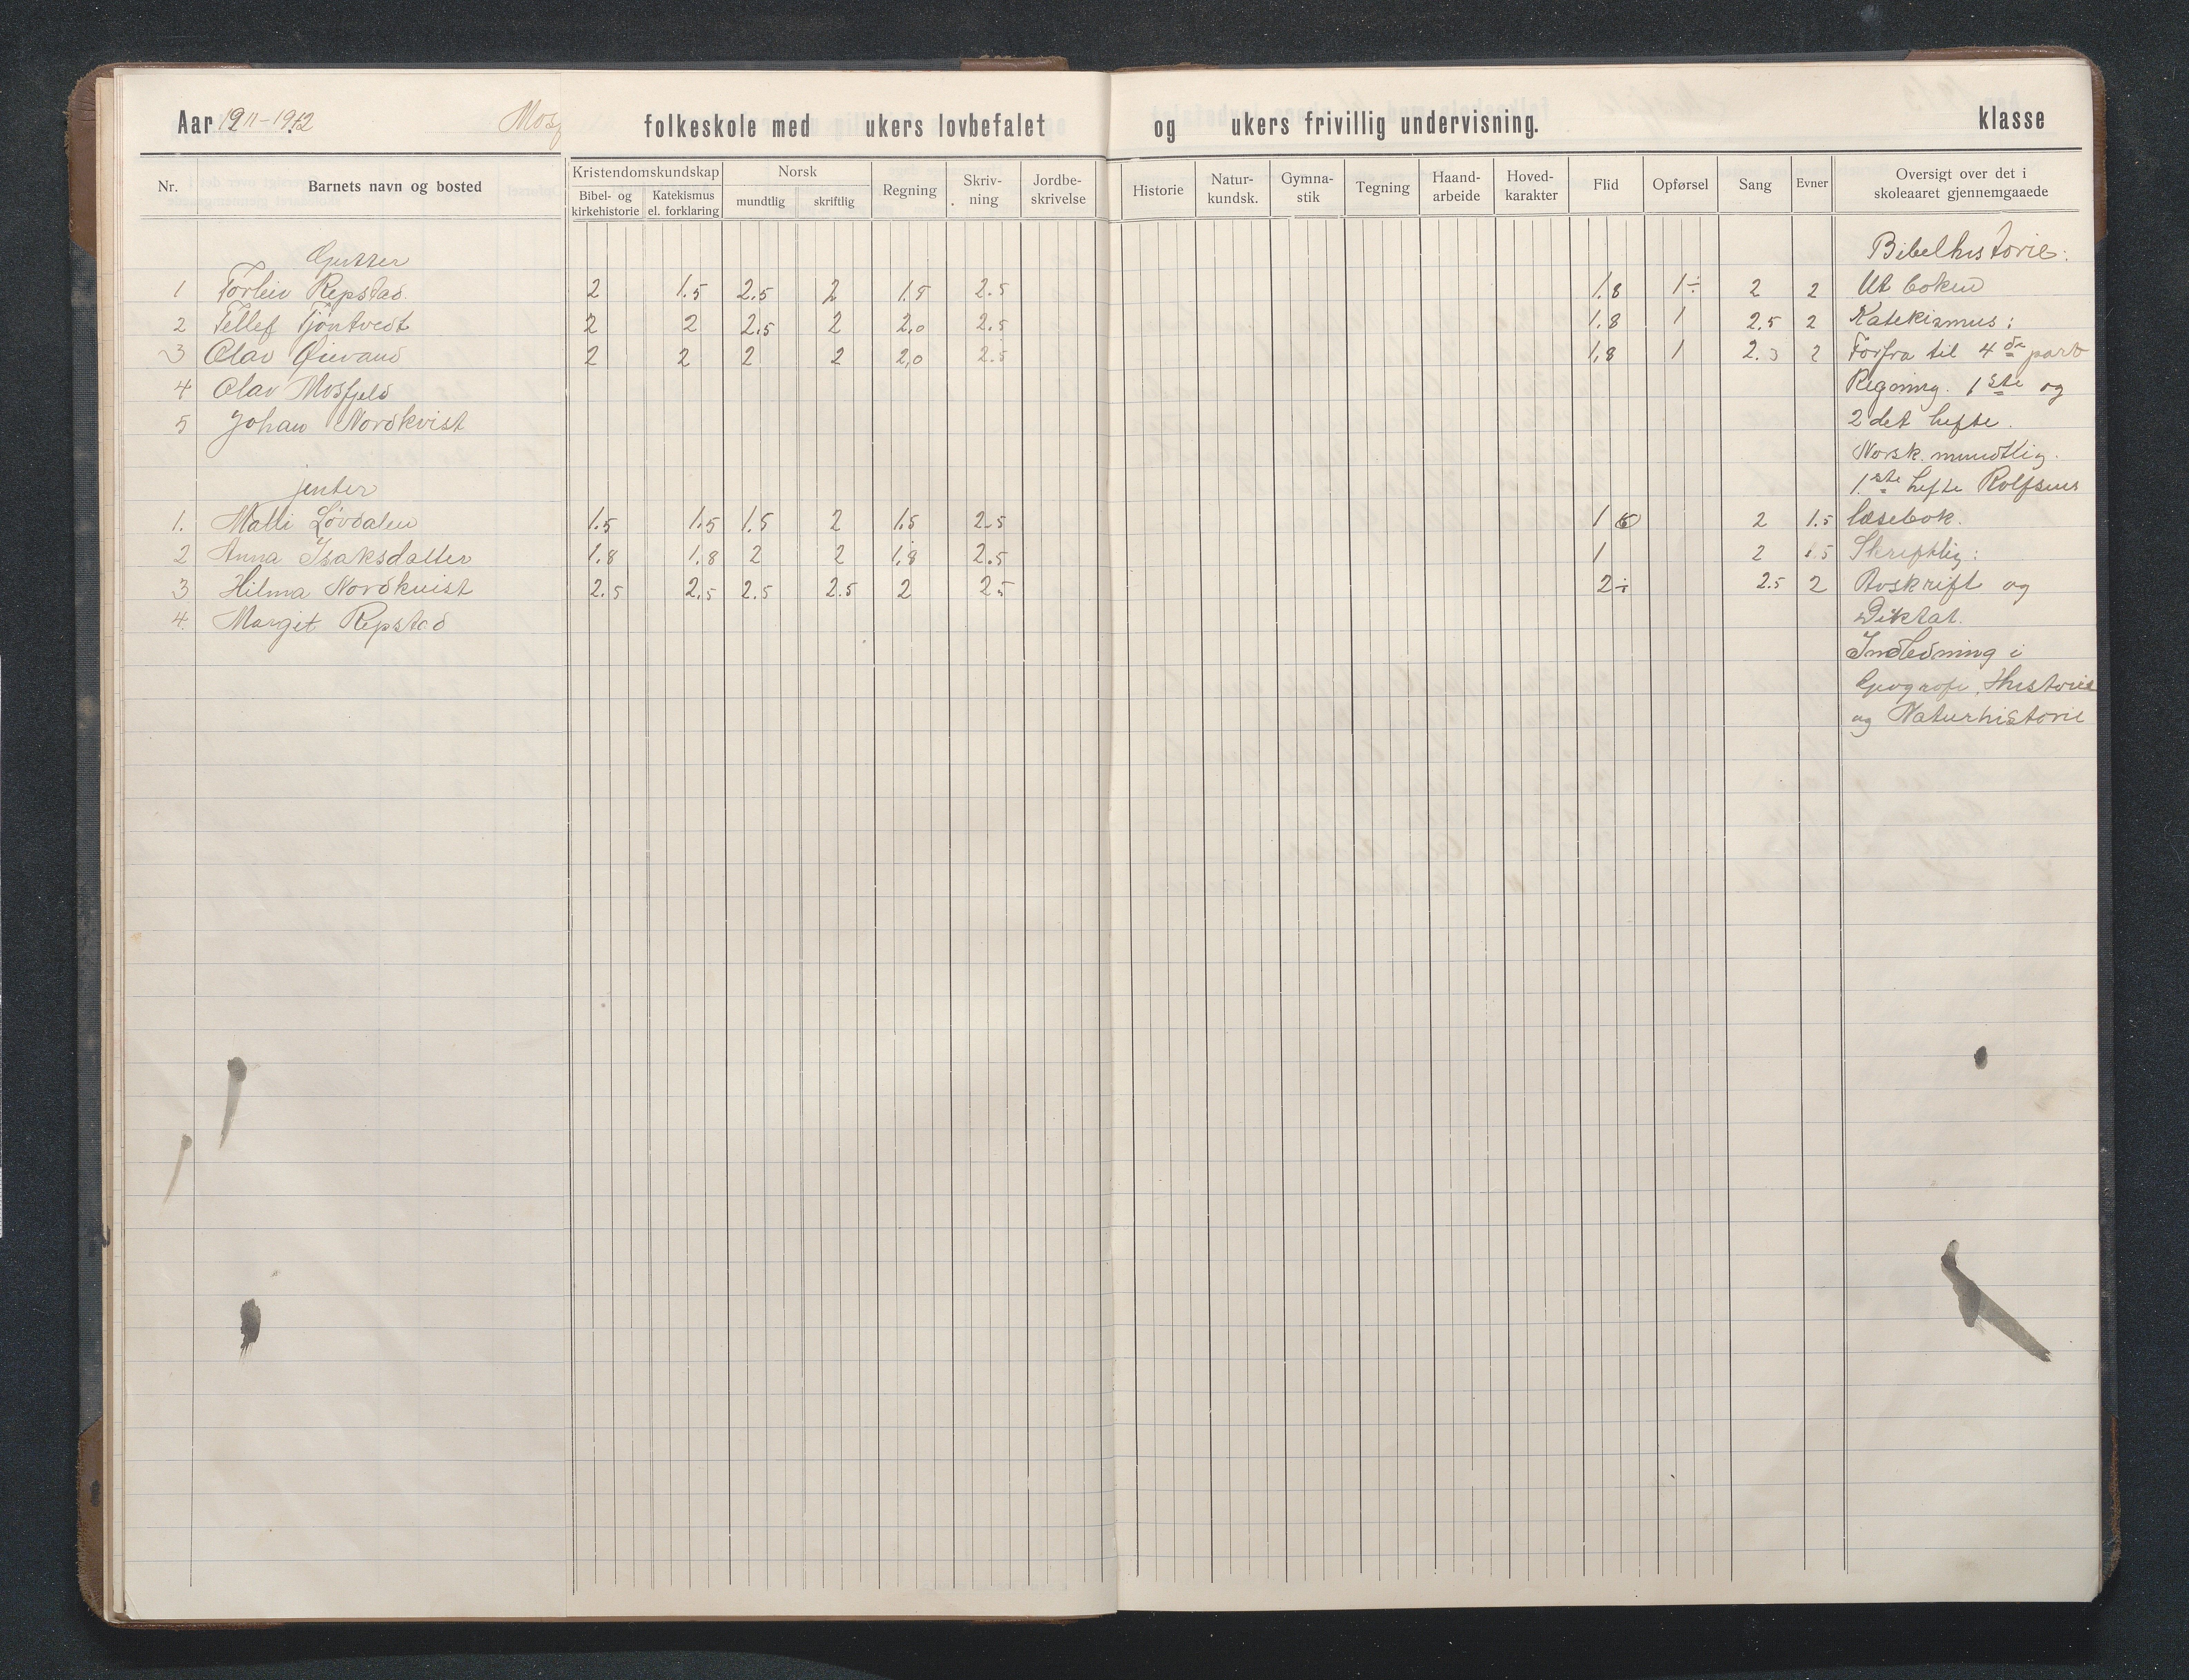 Aar 1911-1912 Mosf folkeskole med ukers lovbefalet og ukers frivillig undervisning. klasse
Nr. Barnets navn og bosted Kristendomskundskap Bibel- og kirkehistorie Katekismus el. forklaring Norsk mundtlig skriftlig Regning Skriv-ning Jordbe-skrivelse Historie Natur-kundsk. Gymna-stik Tegning Haand-arbeide Hoved-karakter Flid Opførsel Sang Evner Oversigt over det i skoleaaret gjennemgaaede
Gutter Bibelhistorie:
1 Torleiv Repstad. 2 1.5 2.5 2 1.5 2.5 1.8 1÷ 2 2 Ut boken
2 Tellef Tjöntvedt 2 2 2.5 2 2,0 2.5 1,8 1 2.5 2 Katekismus:
3 Olav Øievand 2 2 2 2 2,0 2.5 1,8 1 2. 2 Forfra til 4de part
4 Olav Mosfjeld Regning. 1ste og
5 Johan Nordkvist 2det hefte.
Norsk. mundtlig.
jenter 1.ste hefte Rolfsens
1. Malli Løvdalen 1.5 1.5 1.5 2 1.5 2.5 1 2 1.5 læsebok.
2 Anna Isaksdatter 1.8 1.8 2 2 1,8 2.5 1 2 1.5 Skriftlig:
3 Hilma Nordkvist 2.5 2.5 2.5 2.5 2 2.5 2÷ 2.5 2 Avskrift og
4. Margit Repstad Diktat.
Indledning i
Geografi, Historie
og Naturhistorie